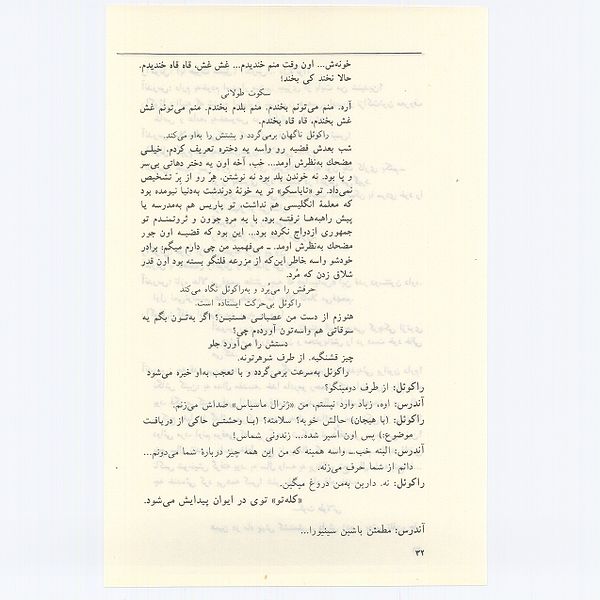 خونه‌ش... اون وقت منم خندیدم... غش غش، قاه قاه خندیدم.
حالا نخند کی بخند!
سکوت طولانی
آره. منم می‌تونم بخندم. منم بلدم بخندم. منم می‌تونم غش
غش بخندم، قاه قاه بخندم.
راکوئل ناگهان برمی‌گردد و پشتش را به‌او می‌کند.
شب بعدش قضیه رو واسه یه دختره تعریف کردم. خیلی
مضحك به‌نظرش اومد... خب، آخه اون یه دختر دهاتی بی‌سر
و پا بود. نه خوندن بلد بود نه نوشتن. هِر رو از پِر تشخیص
نمی‌داد. تو «تاباسکو» تو یه خونهٔ درندشت به‌دنیا نیومده بود
که معلمهٔ انگلیسی هم نداشت، تو پاریس هم به‌مدرسه یا
پیش راهبه‌ها نرفته بود، با یه مرد جوون و ثروتمند تو
جمهوری ازدواج نکرده بود... این بود که قضیه اون جور
مضحك به‌نظرش اومد. ـ می‌فهمید من چی دارم میگم: برادر
خودشو واسه خاطر این‌که از مزرعه قلنگو بسته بود اون قدر
شلاق زدن که مُرد.
حرفش را می‌بُرد و به‌راکوئل نگاه می‌کند
راکوئل بی‌حرکت ایستاده است.
هنوزم از دست من عصبانی هستین؟ اگر به‌تون بگم یه
سوقاتی هم واسه‌تون آورده‌م چی؟
دستش را می‌آورد جلو
چیز قشنگیه. از طرف شوهرتونه.
راکوئل به‌سرعت برمی‌گردد و با تعجب به‌او خیره می‌شود
راکوئل: از طرف دومینگو؟
آندرس: اوه، زیاد وارد نیستم، من «ژنرال ماسیاس» صداش می‌زنم.
راکوئل: (با هیجان) حالش خوبه؟ سلامته؟ (با وحشتی حاکی از دریافت
موضوع:) پس اون اسیر شده... زندونی شماس!
آندرس: البته خب... واسه همینه که من این همه چیز دربارهٔ شما می‌دونم...
دائم از شما حرف می‌زنه.
راکوئل: نه. دارین به‌من دروغ میگین.
«کله‌تو» توی در ایوان پیدایش می‌شود.
آندرس: مطمئن باشین سینیورا...
۳۲